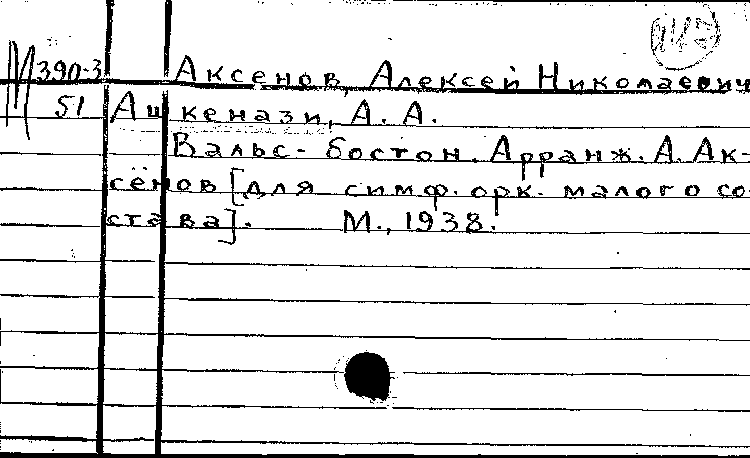 М 390-3 Аксенов, Алексей Николаевич
51 Ашкенази, А. А.
Вальс-бостон. Арранж. А. Ак-
сёнов [для симф. орк. малого со-
става]. М., 1938.